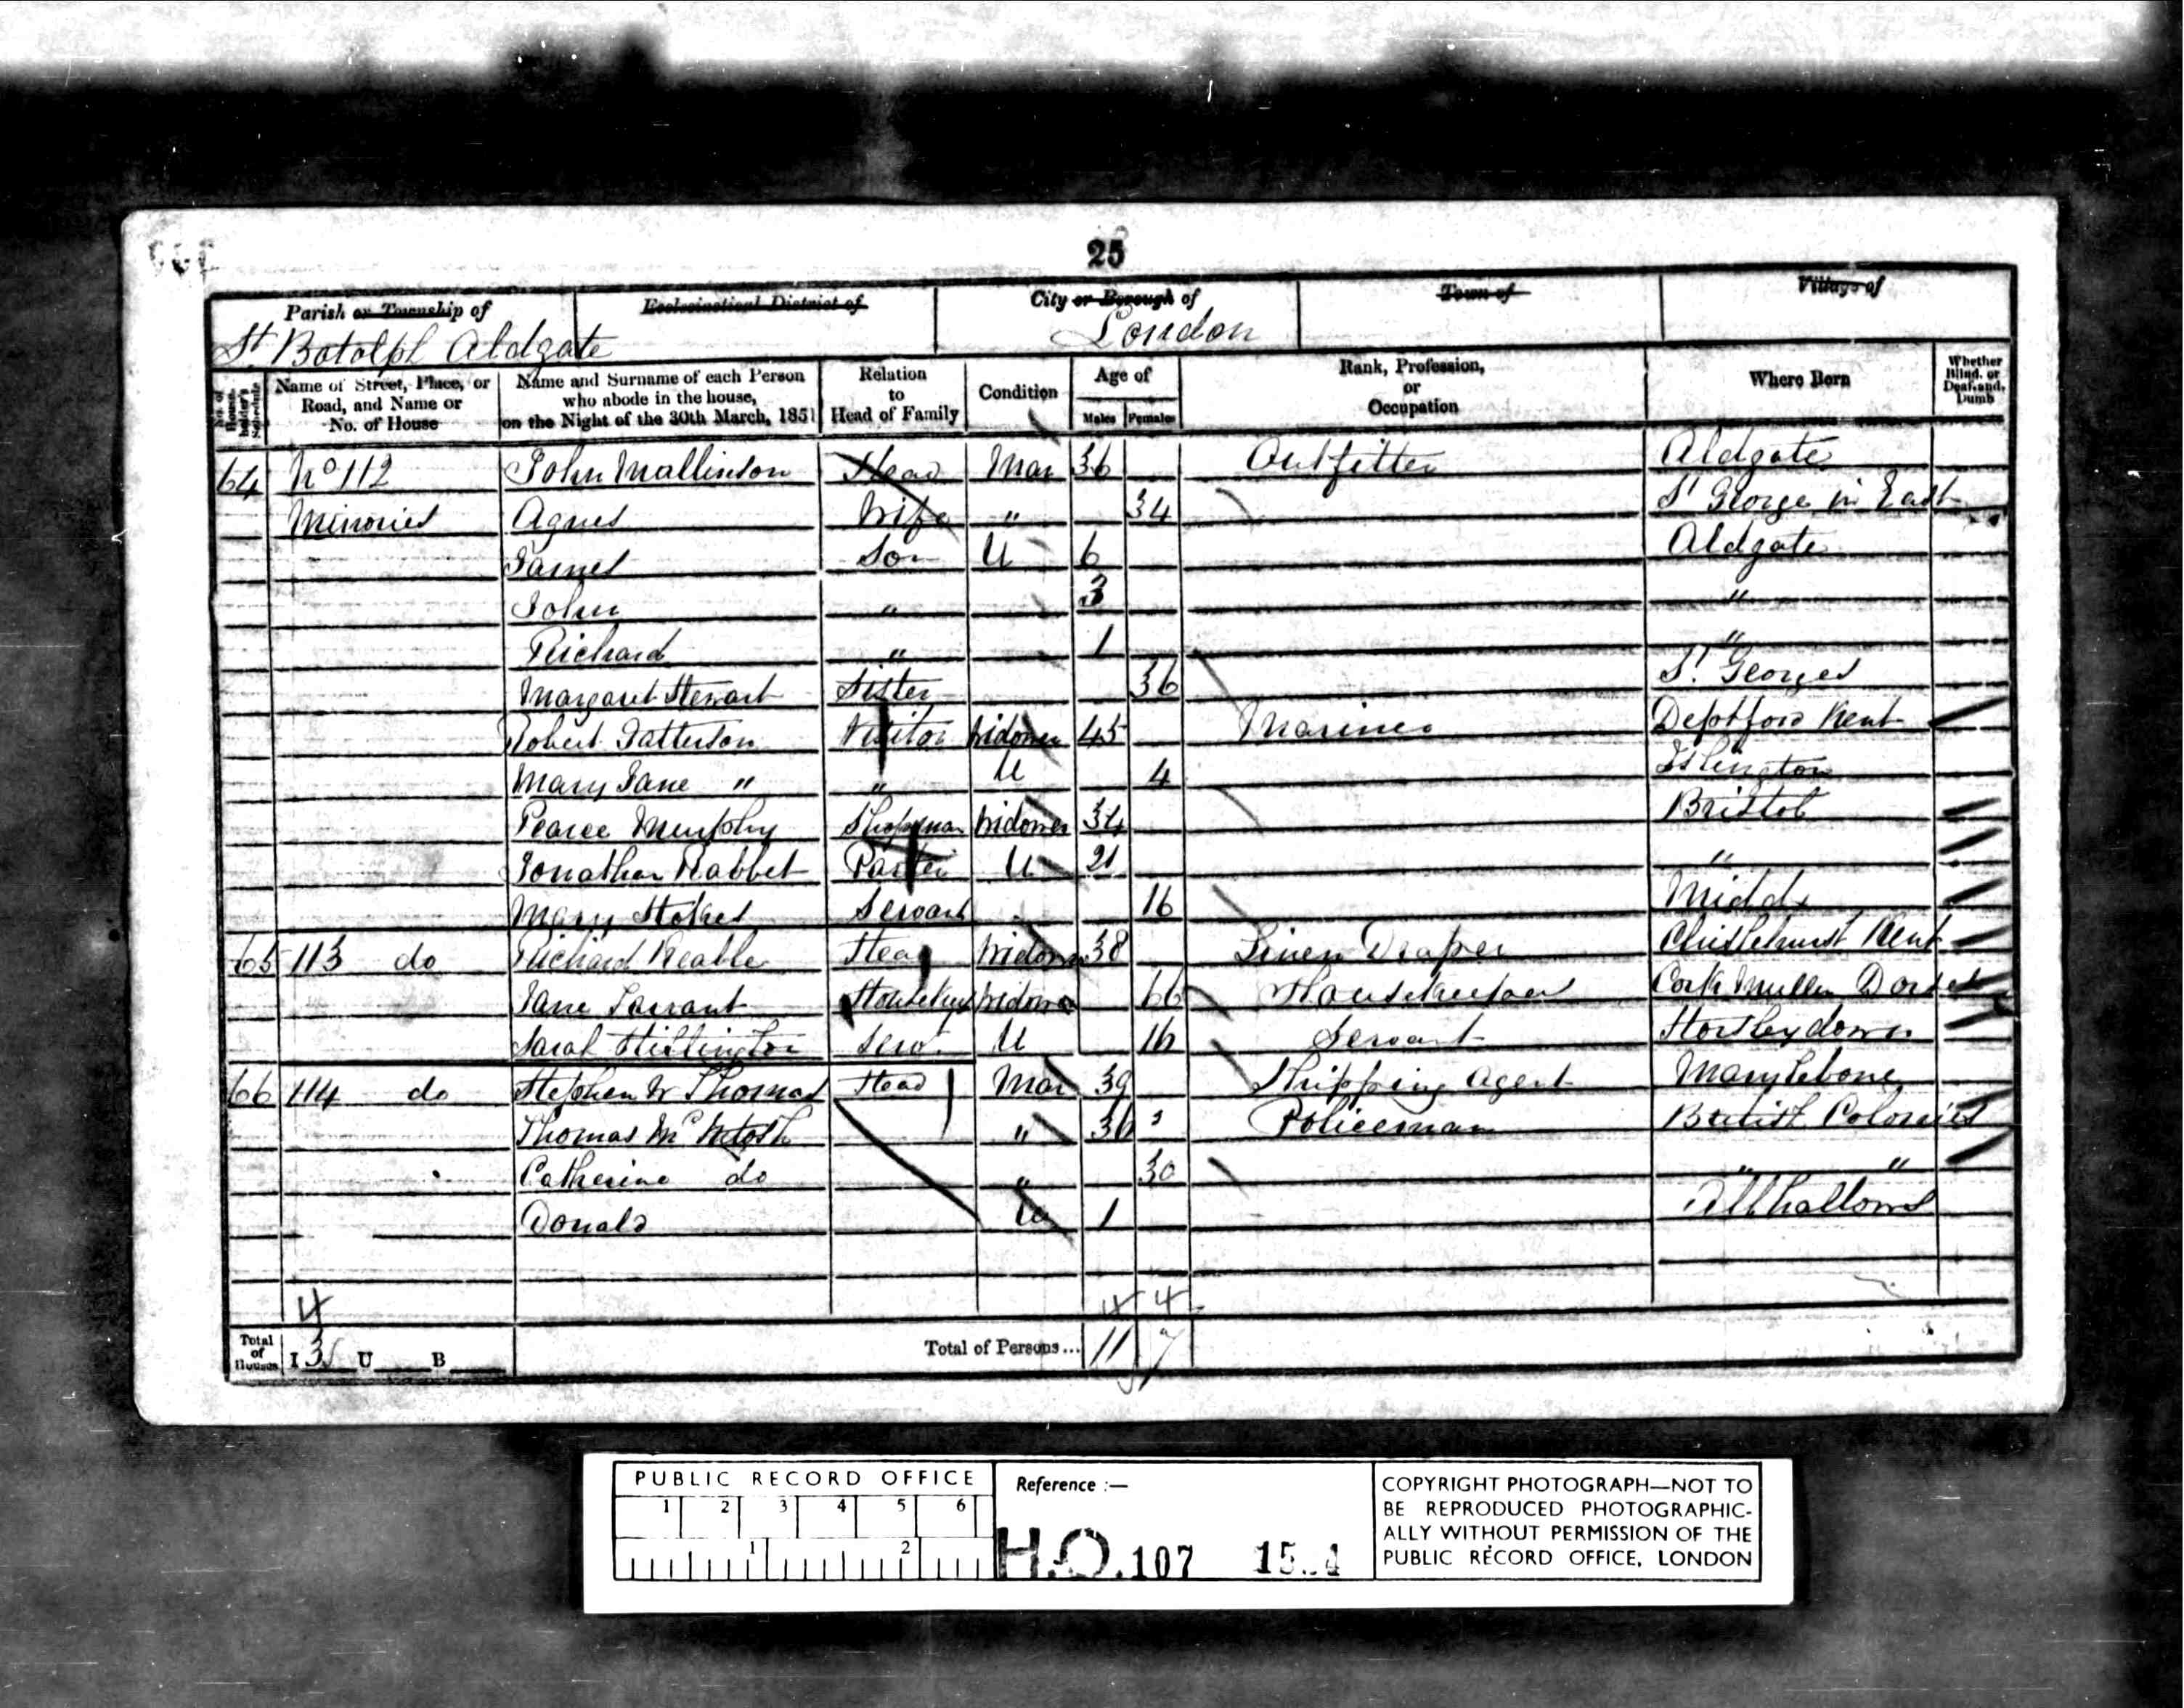 25
Parish or Township of
Ecclesiastical District of
City or Borough of
Town of
Village of
St Botolph Aldgate
London
No. of House-holder's Schedule
Name of Street, Place, or Road, and Name or No. of House
Name and Surname of each Person who abode in the house, on the Night of the 30th March, 1851
Relation to Head of Family
Condition
Age of
Males Females
Rank, Profession, or Occupation
Where Born
Whether Blind, or Deaf and Dumb
64 No 112 John Mallinson Head Mar 36 Outfitter Aldgate
Minories Agnes Wife " 34 St George in East
James Son U 6 Aldgate
John " 3 "
Richard " 1 "
Margaret Stewart Sister 36 St. Georges
Robert Patterson Visitor Widower 45 Mariner Deptford Kent
Mary Jane " " U 4 Islington
Pearce Murphy Shopman Widower 34 Bristol
Jonathan Rabbet Porter U 21 "
Mary Stokes Servant 16 Middx
65 113 do Richard Keable Head Widower 38 Linen Draper Chislehurst Kent
Jane Tarrant Widow 66 Housekeeper Cork Mullen Dorset
Sarah Servt U 16 Servant Horsleydown
66 114 do Stephen W Thomas Head Mar 39 Shipping Agent Marylebone
Thomas McIntosh " 36 Policeman British Colonies
Catherine do " 30 " "
Donald U 1 Allhallows
4
4 4
Total of Houses I 3 U B
Total of Persons... 11 7
PUBLIC RECORD OFFICE
1 2 3 4 5 6
1 2
Reference :—
H.O. 107 15 4
COPYRIGHT PHOTOGRAPH—NOT TO
BE REPRODUCED PHOTOGRAPHIC-
ALLY WITHOUT PERMISSION OF THE
PUBLIC RECORD OFFICE, LONDON